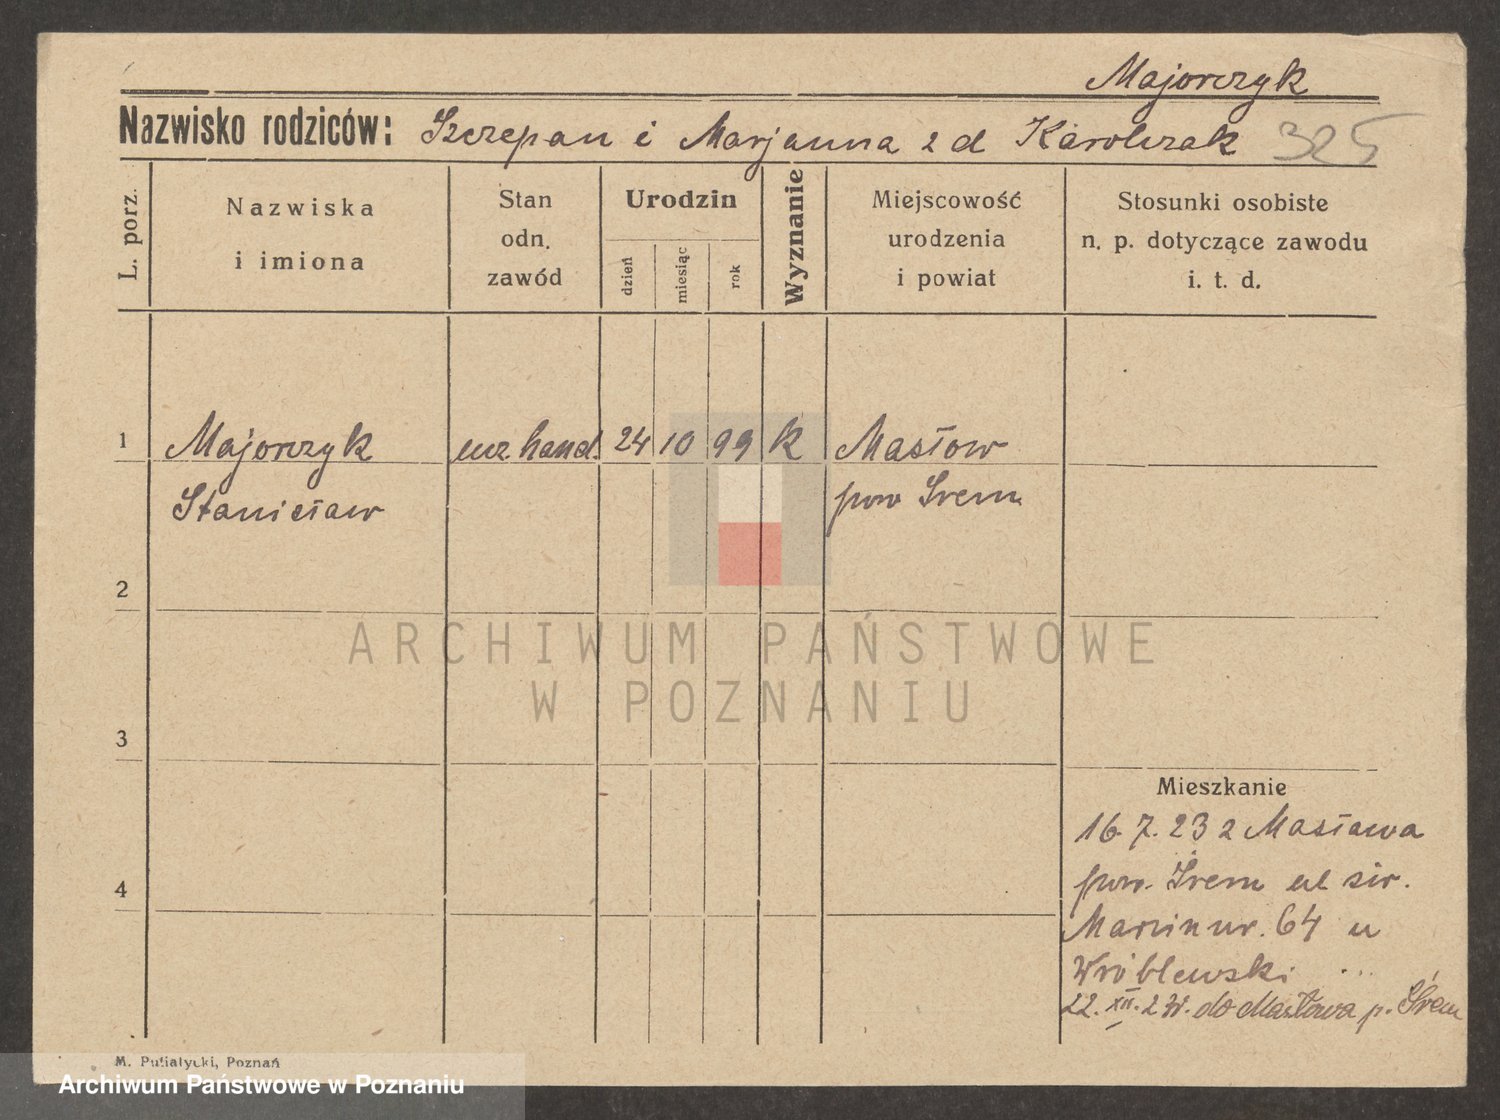 Majorczyk
Nazwisko rodziców: Szczepan i Marjanna z d Karolczak 325
L. porz.
Nazwiska
i imiona
Stan
odn.
zawód
Urodzin
dzień
miesiąc
rok
Wyznanie
Miejscowość
urodzenia
i powiat
Stosunki osobiste
n. p. dotyczące zawodu
i. t. d.
1 Majorczyk ucz. hand. 24 10 99 k Masłow
Stanisław pow Śrem
2
3
4
ARCHIWUM PAŃSTWOWE
W POZNANIU
Mieszkanie
16.7.23 z Masława
pow. Śrem ul św.
Marcin nr. 64 u
Wróblewski
22. XII. do Masłowa p. Śrem
M. Putiatycki, Poznań
Archiwum Państwowe w Poznaniu